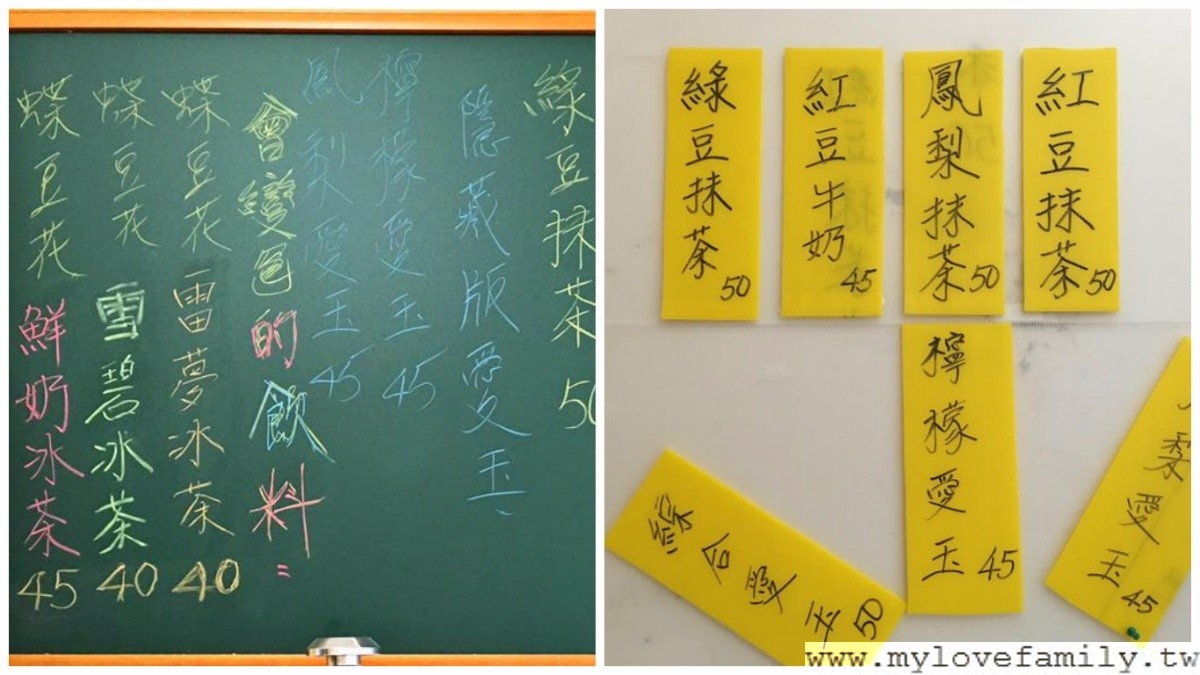 綠豆抹茶 50
隱藏版愛玉、
檸檬愛玉 45
鳳梨愛玉 45
會變色的飲料=
蝶豆花雷夢冰茶 40
蝶豆花雪碧冰茶 40
蝶豆花鮮奶冰茶 45
紅豆抹茶 50
鳳梨抹茶 50
紅豆牛奶 45
綠豆抹茶 50
梨愛玉 45
檸檬愛玉 45
綜合愛玉 50
www.mylovefamily.tw